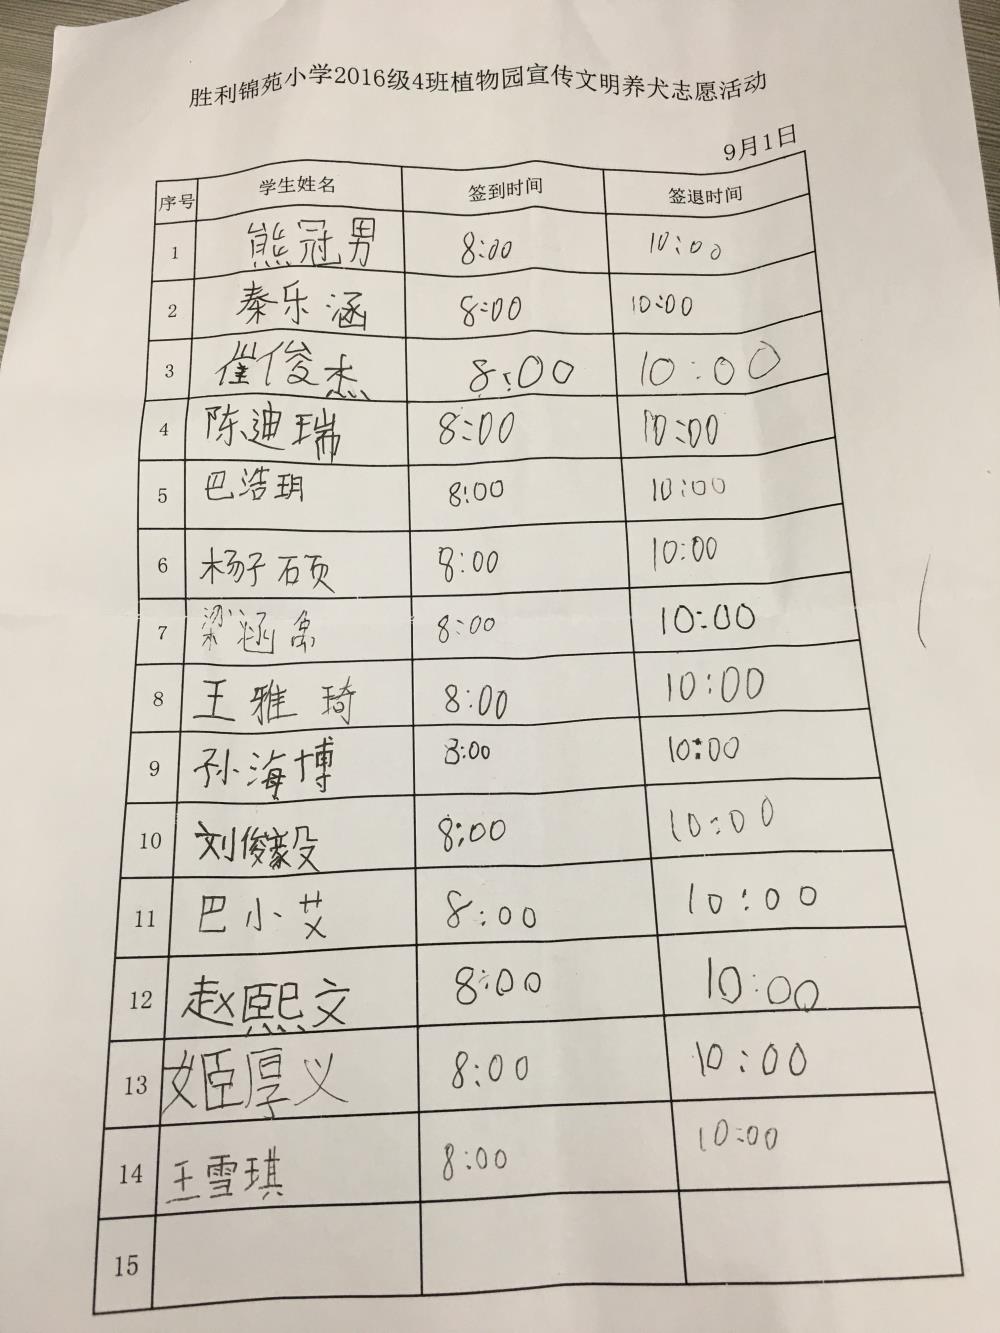 胜利锦苑小学2016级4班植物园宣传文明养犬志愿活动
9月1日
序号 学生姓名 签到时间 签退时间
1 熊冠男 8:00 10:00
2 秦乐涵 8:00 10:00
3 崔俊杰 8:00 10:00
4 陈迪瑞 8:00 10:00
5 巴浩玥 8:00 10:00
6 杨子硕 8:00 10:00
7 梁涵 8:00 10:00
8 王雅琦 8:00 10:00
9 孙海博 8:00 10:00
10 刘俊毅 8:00 10:00
11 巴小艾 8:00 10:00
12 赵熙文 8:00 10:00
13 姬厚义 8:00 10:00
14 王雪琪 8:00 10:00
15